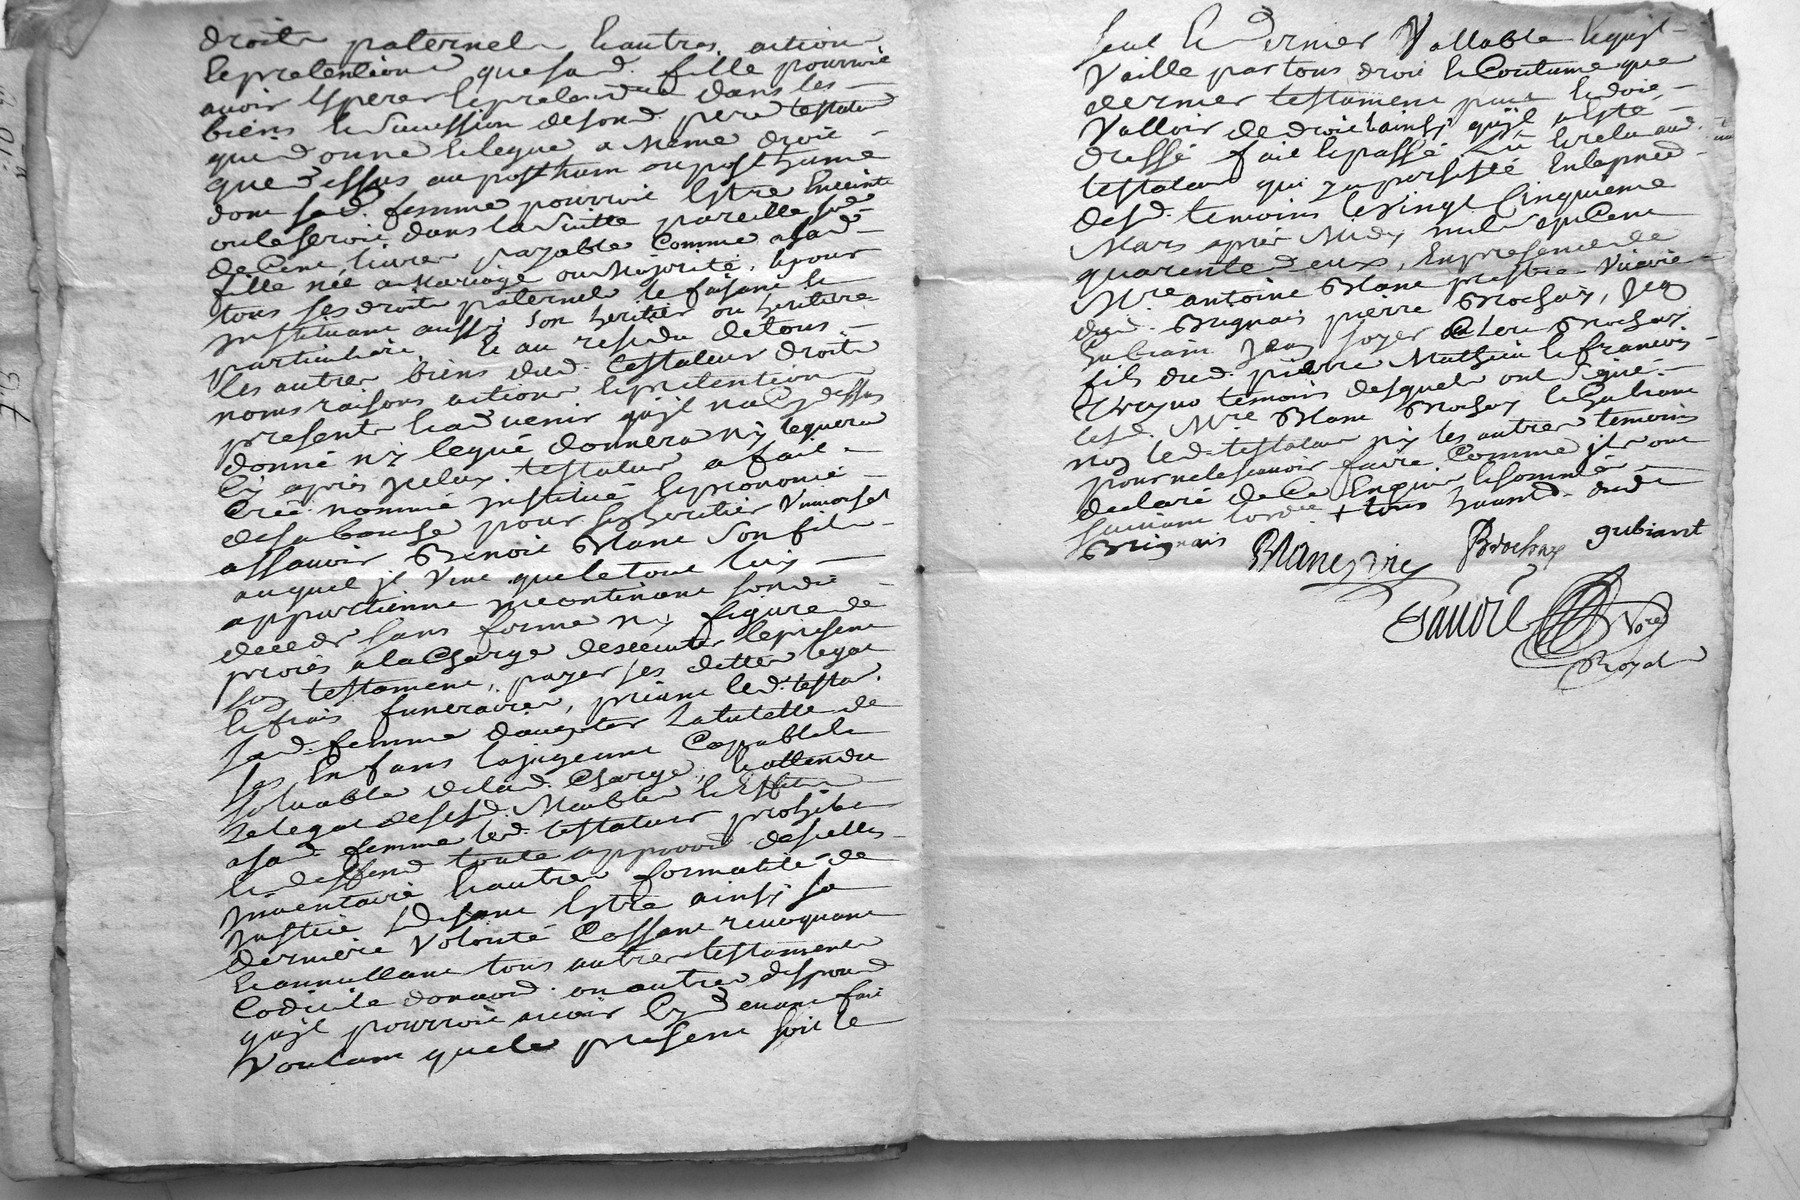 droits paternels & autres actions
& pretentions que sad. fille pourroit
avoir esperer & pretendre dans les
biens & Succession de sond. pere testateur
qui donne & legue a Meme droit
que dessus au posthum ou posthume
dont sad. femme pourroit Estre Enceinte
ou le seroit dans la Suitte pareille so[mm]e
de Cent livres payable Comme a sad.
fille née a Mariage ou Majorité, & pour
tous ses droits paternels le faisant &
instituant aussy son heritier ou heritiere
particuliere. Et au residu de tous
les autres biens dud. testateur droits
noms raisons actions & pretentions
presents & advenir qu'jl na Cy dessus
donné ny legué donnera ny leguera
Cy après jcelux testateur a fait
Créé nommé jnstitué & prononcé
de sa bouche pour son heritier Vniversel
assavoir Benoit Blanc Son fils
auquel jl Veut que le tout luy
appartienne jncontinant son dit
deceds sans forme ny figure de
procès a la Charge d'executer le present
son testament, payer ses dettes legat
& frais funeraires, priant led. testat.
sad. femme d'accepter La tutelle de
ses Enfans la jugeant Capable &
solvable de lad. Charge, & attendu
Le legat desesd. Meubles & Effets
a sad. femme led. testateur prohibe
& deffend toute appood. descellés
jnventaire & autres formalité de
justice Disant Estre ainsy sa
derniere Volonté Cassant revoquant
& annullant tous autres testaments
Codicile donaond. ou autres dispoond
qu'jl pourroit avoir Cy devant fait
Voulant que le present soit le
seul & Dernier Vallable & qu'jl
Vaille par tous droit & Coutume que
dernier testament peut & doit
Valloir de droit ainsy qu'jl a esté
dressé fait & passé Lû & relu aud.
testateur qui y a persisté En la pnce
desd. temoins le vingt Cinquieme
Mars après Midy mil sept Cent
quarente deux, En presence de
Mre antoine Blanc prestre Vicaire
dud. Brignais pierre Brochay, Jean
Gubiain Jean soyer Brochay
fils dud. pierre Mathieu & francois
temoins desquels ont signé
lesd. Mre Blanc Brochay & Gubiant
non led. testateur ny les autres temoins
pour ne le scavoir faire Comme jls ont
declaré de Ce Enquis & sommés
suivant lord[e] + tous habitants dud.
Brignais
Blanc pre Brochay gubiant
Nore
Royal